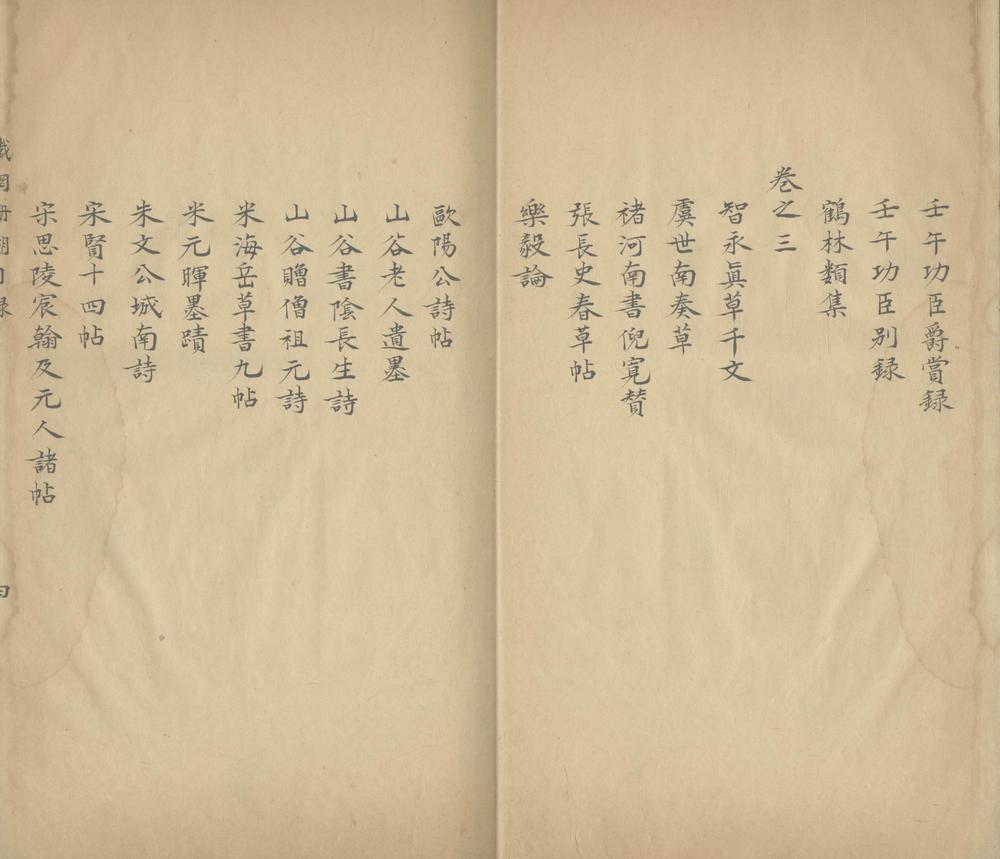 壬午功臣爵賞録
壬午功臣別録
鶴林類集
卷之三
智永眞草千文
虞世南奏草
褚河南書倪寬賛
張長史春草帖
樂毅論
歐陽公詩帖
山谷老人遺墨
山谷書陰長生詩
山谷贈僧祖元詩
米海岳草書九帖
米元暉墨蹟
朱文公城南詩
宋賢十四帖
宋思陵宸翰及元人諸帖